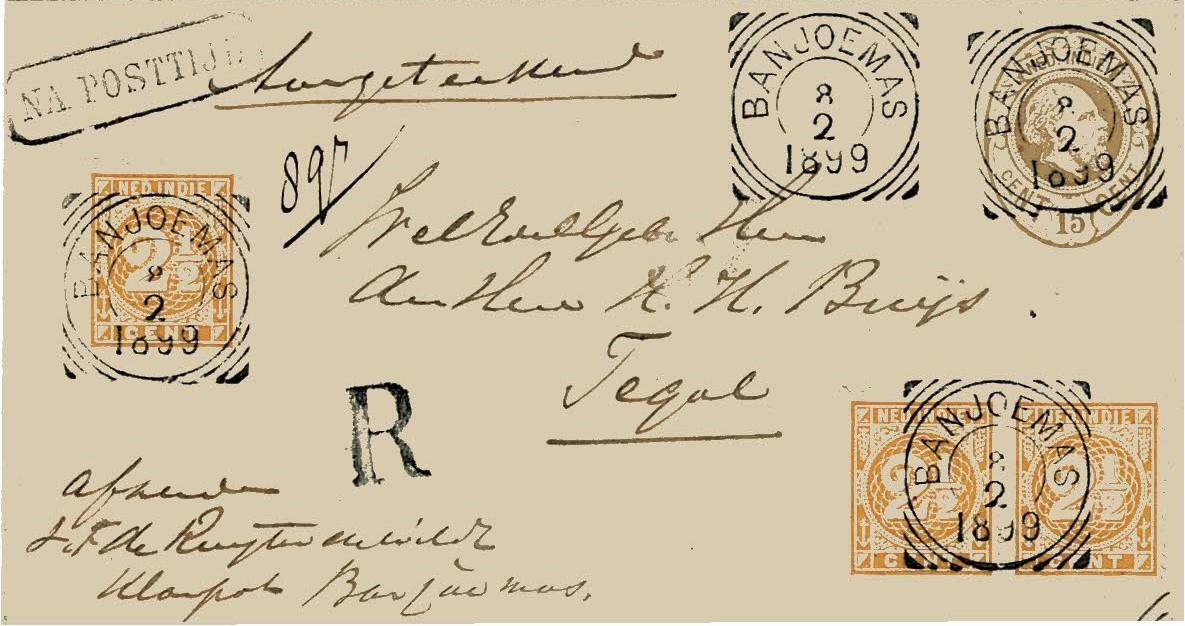 NA POSTTIJD
Aangeteekend
BANJOEMAS
8
2
1899
BANJOEMAS
8
2
1899
CENT 15 CENT
897
NED. INDIE
2½
CENT
BANJOEMAS
8
2
1899
WelEdelGeb. Heer
Den Heer H. H. Buijs
Tegal
R
NED. INDIE
2½
CENT
NED. INDIE
2½
CENT
BANJOEMAS
8
2
1899
afzender
de Ruyter de Wildt
Klampok Banjoemas.